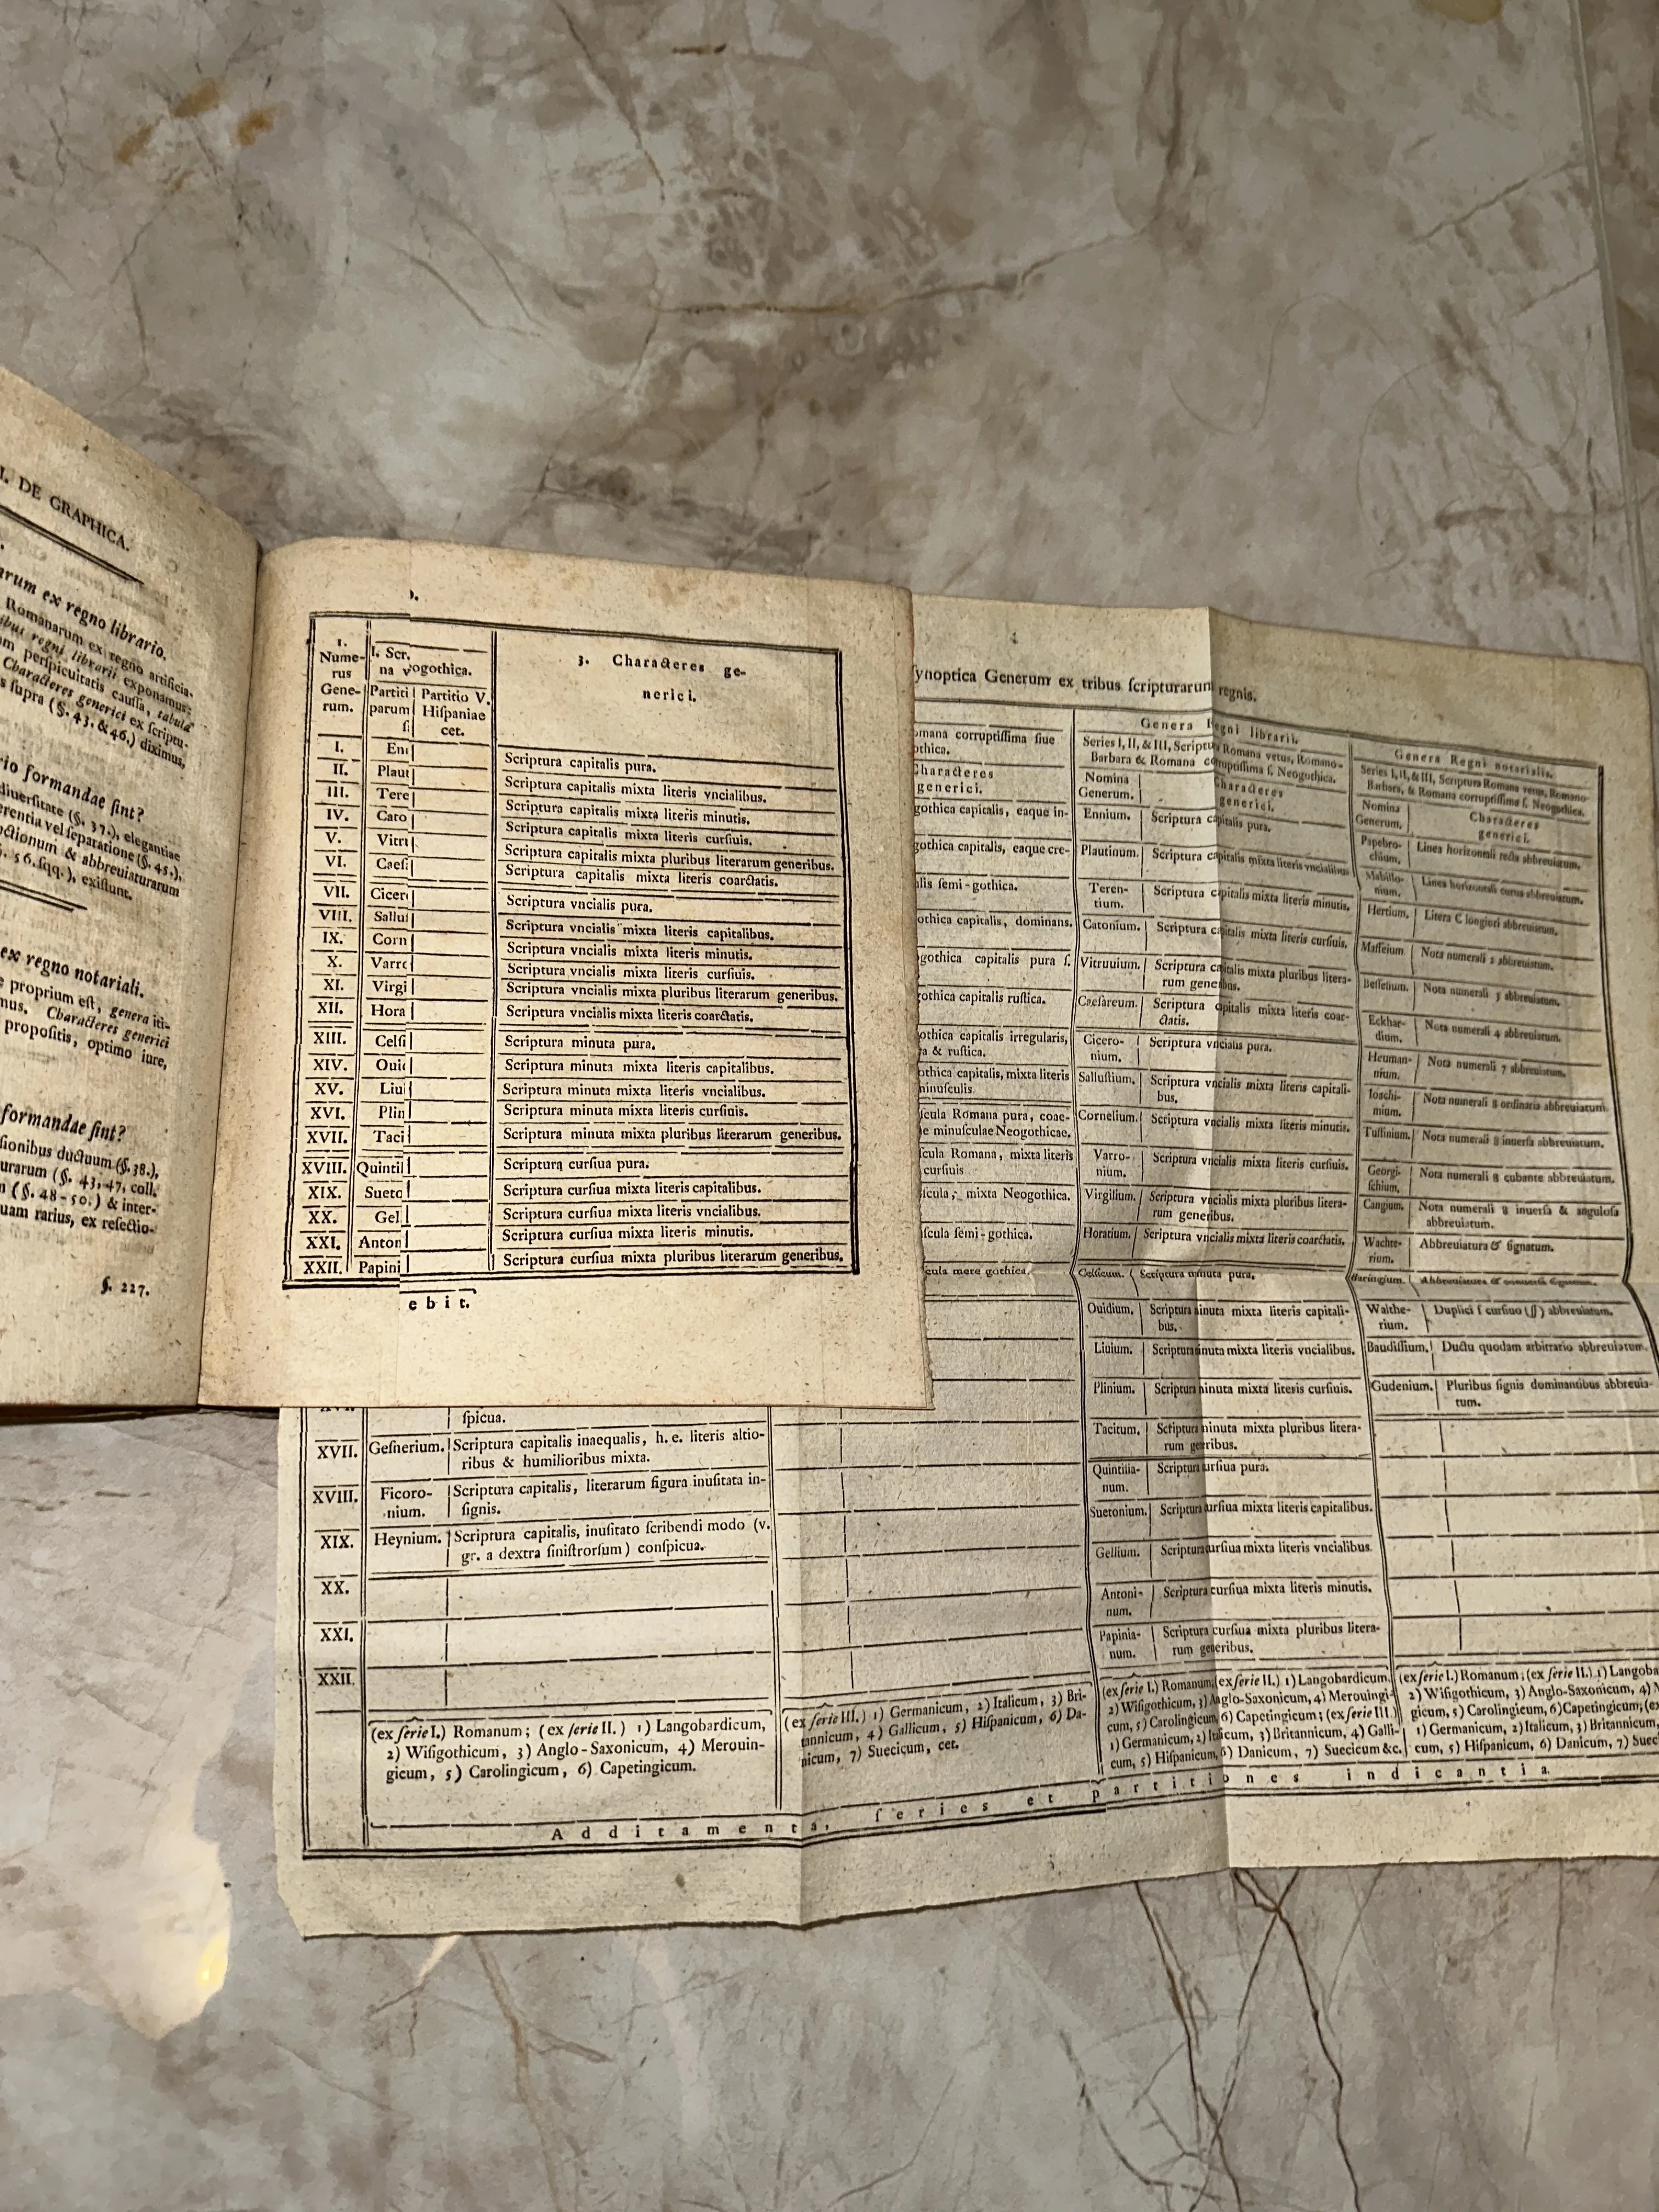 I. DE GRAPHICA.
arum ex regno librario.
Romanarum ex regno artificia-
ibus regni librarii exponamus:
m perſpicuitatis cauſſa, tabula
Characteres generici ex ſcriptu-
s ſupra (§. 43. & 46.) diximus,
rio formandae ſint?
diuerſitate (§. 37.), elegantiae
erentia vel ſeparatione (§. 45.),
ctionum & abbreuiaturarum
§. 56. ſqq.), exiſtunt.
ex regno notariali.
e proprium eſt, genera iti-
mus. Characteres generici
propoſitis, optimo iure,
formandae ſint?
ſionibus ductuum (§. 38.),
urarum (§. 43. 47. coll.
n (§. 48-50.) & inter-
uam rarius, ex reſectio-
§. 227.
1. Nume-rus Gene-rum.
I. Scr. na
vogothica.
Partiti parum ſ.
Partitio V. Hiſpaniae cet.
3. Characteres ge-
nerici.
I. En Scriptura capitalis pura.
II. Plaut Scriptura capitalis mixta literis vncialibus.
III. Tere Scriptura capitalis mixta literis minutis.
IV. Cato Scriptura capitalis mixta literis curſiuis.
V. Vitru Scriptura capitalis mixta pluribus literarum generibus.
VI. Caeſ Scriptura capitalis mixta literis coarctatis.
VII. Cicer Scriptura vncialis pura.
VIII. Sallu Scriptura vncialis mixta literis capitalibus.
IX. Corn Scriptura vncialis mixta literis minutis.
X. Varr Scriptura vncialis mixta literis curſiuis.
XI. Virgi Scriptura vncialis mixta pluribus literarum generibus.
XII. Hora Scriptura vncialis mixta literis coarctatis.
XIII. Celſi Scriptura minuta pura.
XIV. Oui Scriptura minuta mixta literis capitalibus.
XV. Liu Scriptura minuta mixta literis vncialibus.
XVI. Plin Scriptura minuta mixta literis curſiuis.
XVII. Taci Scriptura minuta mixta pluribus literarum generibus.
XVIII. Quintil Scriptura curſiua pura.
XIX. Sueto Scriptura curſiua mixta literis capitalibus.
XX. Gel Scriptura curſiua mixta literis vncialibus.
XXI. Anton Scriptura curſiua mixta literis minutis.
XXII. Papini Scriptura curſiua mixta pluribus literarum generibus.
ebit.
ynoptica Generum ex tribus ſcripturarum regnis.
omana corruptiſſima ſiue
othica.
Characteres
generici.
gothica capitalis, eaque in-
gothica capitalis, eaque cre-
alis ſemi-gothica.
othica capitalis, dominans.
gothica capitalis pura ſ.
gothica capitalis ruſtica.
othica capitalis irregularis,
a & ruſtica.
othica capitalis, mixta literis
minuſculis.
ſcula Romana pura, coae-
e minuſculae Neogothicae.
ſcula Romana, mixta literis
curſiuis
ſcula, mixta Neogothica.
ſcula ſemi-gothica.
cula mere gothica.
Genera Regni librarii.
Series I, II, & III, Scriptura Romana vetus, Romano-
Barbara & Romana corruptiſſima ſ. Neogothica.
Nomina Generum.
Characteres generici.
Ennium. Scriptura capitalis pura.
Plautinum. Scriptura capitalis mixta literis vncialibus
Teren-tium. Scriptura capitalis mixta literis minutis.
Catonium. Scriptura capitalis mixta literis curſiuis.
Vitruuium. Scriptura capitalis mixta pluribus litera-
rum generibus.
Caeſareum. Scriptura capitalis mixta literis coar-
ctatis.
Cicero-nium. Scriptura vncialis pura.
Salluſtium. Scriptura vncialis mixta literis capitali-
bus.
Cornelium. Scriptura vncialis mixta literis minutis.
Varro-nium. Scriptura vncialis mixta literis curſiuis.
Virgilium. Scriptura vncialis mixta pluribus litera-
rum generibus.
Horatium. Scriptura vncialis mixta literis coarctatis.
Celſicum. Scriptura minuta pura.
Ouidium. Scriptura minuta mixta literis capitali-
bus.
Liuium. Scriptura minuta mixta literis vncialibus.
Plinium. Scriptura minuta mixta literis curſiuis.
Tacitum. Scriptura minuta mixta pluribus litera-
rum generibus.
Quintilia-num. Scriptura curſiua pura.
Suetonium. Scriptura curſiua mixta literis capitalibus.
Gellium. Scriptura curſiua mixta literis vncialibus
Antoni-num. Scriptura curſiua mixta literis minutis.
Papinia-num. Scriptura curſiua mixta pluribus litera-
rum generibus.
Genera Regni notarialis.
Series I, II, & III, Scriptura Romana vetus, Romano-
Barbara, & Romana corruptiſſima ſ. Neogothica.
Nomina Generum.
Characteres generici.
Papebro-chium. Linea horizontali recta abbreuiatum.
Mabillo-nium. Linea horizontali curua abbreuiatum.
Hertium. Litera C longiori abbreuiatum.
Maffeium. Nota numerali 2 abbreuiatum.
Beſſelium. Nota numerali 3 abbreuiatum.
Eckhar-dium. Nota numerali 4 abbreuiatum.
Heuman-nium. Nota numerali 7 abbreuiatum.
Ioachi-mium. Nota numerali 8 ordinaria abbreuiatum.
Tuſſinium. Nota numerali 8 inuerſa abbreuiatum.
Georgi-ſchium. Nota numerali 8 cubante abbreuiatum.
Cangium. Nota numerali 8 inuerſa & anguloſa
abbreuiatum.
Wachte-rium. Abbreuiatura & ſignatum.
Baringium.
Walthe-rium. Duplici ſ curſiuo (ſſ) abbreuiatum.
Baudiſſium. Ductu quodam arbitrario abbreuiatum.
Gudenium. Pluribus ſignis dominantibus abbreuia-
tum.
ſpicua.
XVII. Geſnerium. Scriptura capitalis inaequalis, h. e. literis altio-
ribus & humilioribus mixta.
XVIII. Ficoro-nium. Scriptura capitalis, literarum figura inuſitata in-
ſignis.
XIX. Heynium. Scriptura capitalis, inuſitato ſcribendi modo (v.
gr. a dextra ſiniſtrorſum) conſpicua.
XX.
XXI.
XXII.
(ex ſerie I.) Romanum; (ex ſerie II.) 1) Langobardicum,
2) Wiſigothicum, 3) Anglo-Saxonicum, 4) Merouin-
gicum, 5) Carolingicum, 6) Capetingicum.
(ex ſerie III.) 1) Germanicum, 2) Italicum, 3) Bri-
tannicum, 4) Gallicum, 5) Hiſpanicum, 6) Da-
nicum, 7) Suecicum, cet.
(ex ſerie I.) Romanum; (ex ſerie II.) 1) Langobardicum,
2) Wiſigothicum, 3) Anglo-Saxonicum, 4) Merouingi-
cum, 5) Carolingicum, 6) Capetingicum; (ex ſerie III.)
1) Germanicum, 2) Italicum, 3) Britannicum, 4) Galli-
cum, 5) Hiſpanicum, 6) Danicum, 7) Suecicum &c.
(ex ſerie I.) Romanum; (ex ſerie II.) 1) Langoba
2) Wiſigothicum, 3) Anglo-Saxonicum, 4) M
gicum, 5) Carolingicum, 6) Capetingicum; (ex
1) Germanicum, 2) Italicum, 3) Britannicum,
cum, 5) Hiſpanicum, 6) Danicum, 7) Suec
Additamenta, ſeries et partitiones indicantia.